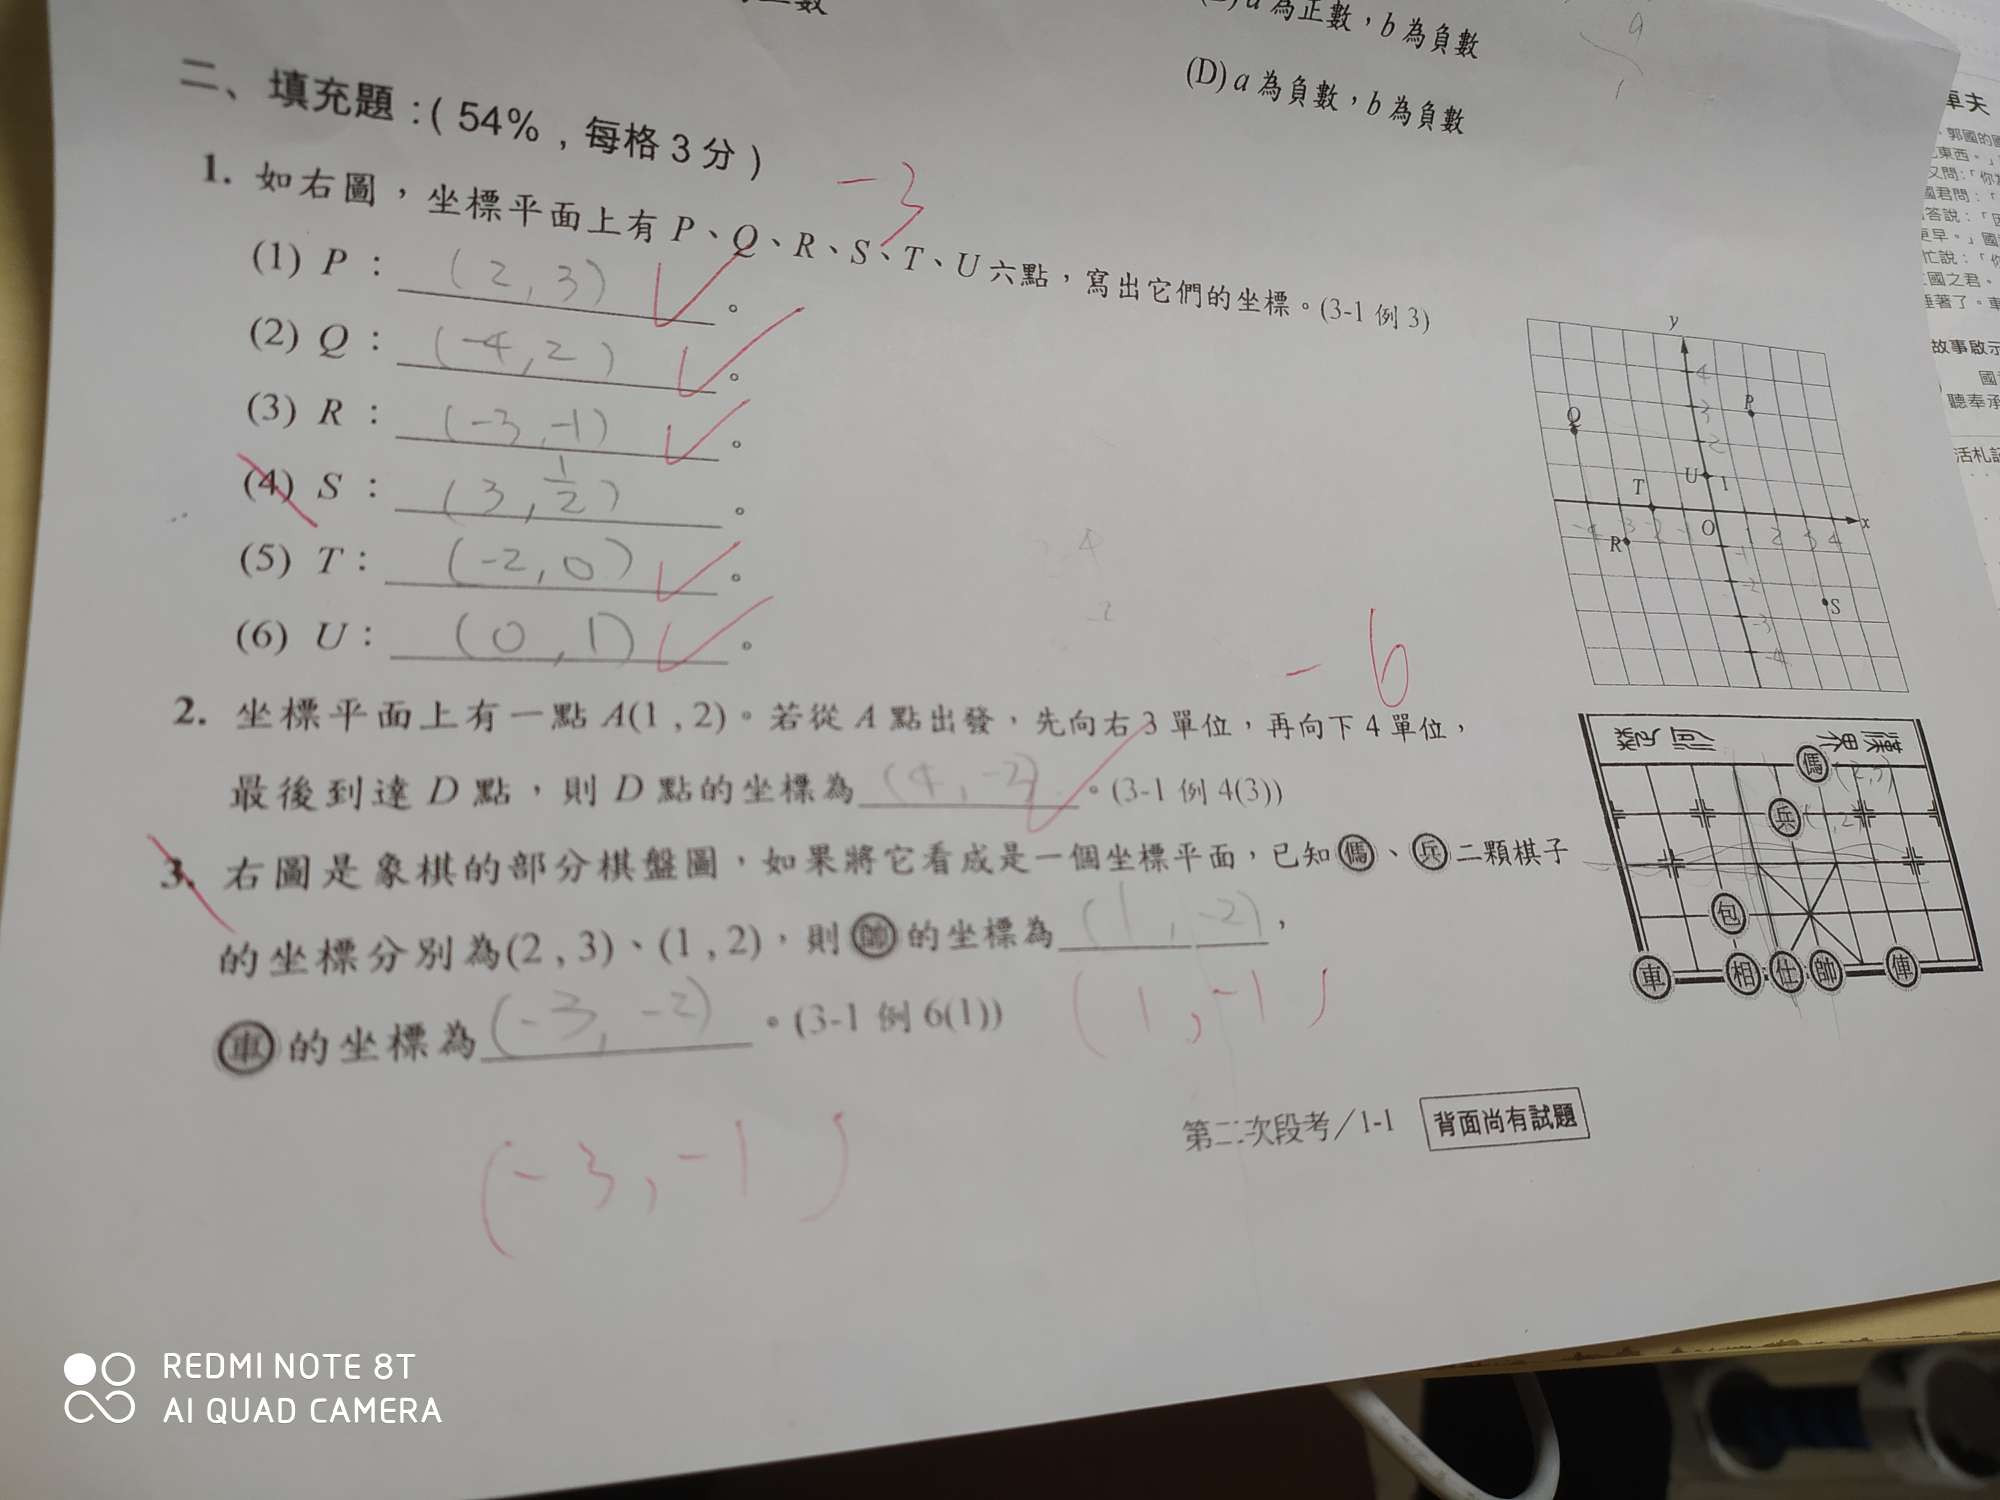 a 為正數，b 為負數
(D) a 為負數，b 為負數
二、填充題：( 54%，每格 3 分 )
-3
1. 如右圖，坐標平面上有 P、Q、R、S、T、U 六點，寫出它們的坐標。(3-1 例 3)
(1) P：(2,3)。
(2) Q：(-4,2)。
(3) R：(-3,-1)。
(4) S：(3,1/2)。
(5) T：(-2,0)。
(6) U：(0,1)。
y
4
3
P
Q
2
U 1
T
x
-4 -3 -2 -1 O 1 2 3 4
R
-1
-2
S
-3
-4
-6
2. 坐標平面上有一點 A(1 , 2)。若從 A 點出發，先向右 3 單位，再向下 4 單位，
最後到達 D 點，則 D 點的坐標為(4,-2)。(3-1 例 4(3))
3. 右圖是象棋的部分棋盤圖，如果將它看成是一個坐標平面，已知傌、兵二顆棋子
的坐標分別為(2 , 3)、(1 , 2)，則帥的坐標為(1,-2)，
車的坐標為(-3,-2)。(3-1 例 6(1))
(1,-1)
(-3,-1)
楚河 漢界
傌 (2,3)
兵
包
車 相 仕 帥 俥
第二次段考／1-1 背面尚有試題
車夫
郭國的
東西。」
又問：「你
國君問：「
答說：「因
更早。」國
忙說：「你
國之君。
睡著了。車
故事啟示
國
聽奉承
活札記
REDMI NOTE 8T
AI QUAD CAMERA